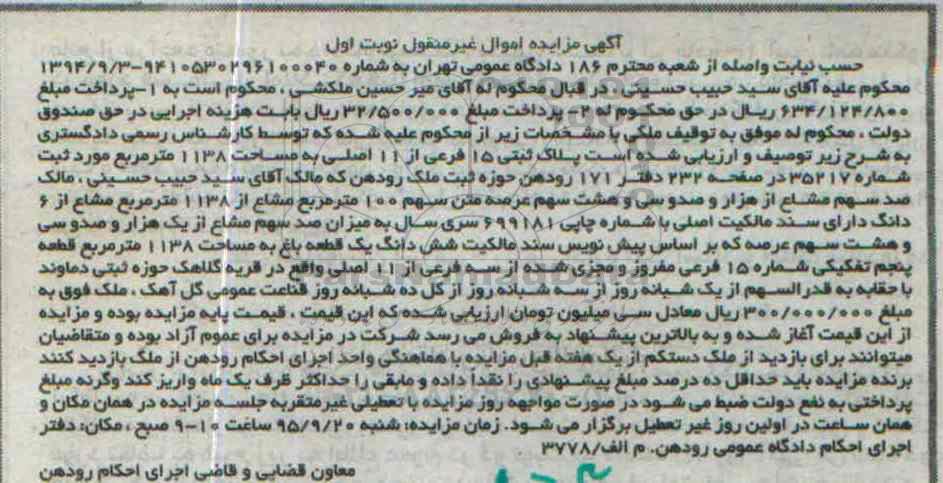 آگهی مزایده اموال غیرمنقول نوبت اول
حسب نیابت واصله از شعبه محترم ۱۸۶ دادگاه عمومی تهران به شماره ۹۴۱۰۵۳۰۲۹۶۱۰۰۰۴۰-۱۳۹۴/۹/۳
محکوم علیه آقای سید حبیب حسینی، در قبال محکوم له آقای میر حسین ملکشی، محکوم است به ۱-پرداخت مبلغ
۶۳۴/۱۲۴/۸۰۰ ریال در حق محکوم له ۲- پرداخت مبلغ ۳۲/۵۰۰/۰۰۰ ریال بابت هزینه اجرایی در حق صندوق
دولت، محکوم له موفق به توقیف ملکی با مشخصات زیر از محکوم علیه شده که توسط کارشناس رسمی دادگستری
به شرح زیر توصیف و ارزیابی شده است پلاک ثبتی ۱۵ فرعی از ۱۱ اصلی به مساحت ۱۱۳۸ مترمربع مورد ثبت
شماره ۳۵۲۱۷ در صفحه ۲۳۲ دفتر ۱۷۱ رودهن حوزه ثبت ملک رودهن که مالک آقای سید حبیب حسینی، مالک
صد سهم مشاع از هزار و صدو سی و هشت سهم عرصه متن سهم ۱۰۰ مترمربع مشاع از ۱۱۳۸ مترمربع مشاع از ۶
دانگ دارای سند مالکیت اصلی با شماره چاپی ۶۹۹۱۸۱ سری سال به میزان صد سهم مشاع از یک هزار و صدو سی
و هشت سهم عرصه که بر اساس پیش نویس سند مالکیت شش دانگ یک قطعه باغ به مساحت ۱۱۳۸ مترمربع قطعه
پنجم تفکیکی شماره ۱۵ فرعی مفروز و مجزی شده از سه فرعی از ۱۱ اصلی واقع در قریه گلاهک حوزه ثبتی دماوند
با حقابه به قدرالسهم از یک شبانه روز از سه شبانه روز از کل ده شبانه روز قناعت عمومی گل آهک، ملک فوق به
مبلغ ۳۰۰/۰۰۰/۰۰۰ ریال معادل سی میلیون تومان ارزیابی شده که این قیمت، قیمت پایه مزایده بوده و مزایده
از این قیمت آغاز شده و به بالاترین پیشنهاد به فروش می رسد شرکت در مزایده برای عموم آزاد بوده و متقاضیان
میتوانند برای بازدید از ملک دستکم از یک هفته قبل مزایده با هماهنگی واحد اجرای احکام رودهن از ملک بازدید کنند
برنده مزایده باید حداقل ده درصد مبلغ پیشنهادی را نقداً داده و مابقی را حداکثر ظرف یک ماه واریز کند وگرنه مبلغ
پرداختی به نفع دولت ضبط می شود در صورت مواجهه روز مزایده با تعطیلی غیرمترقبه جلسه مزایده در همان مکان و
همان ساعت در اولین روز غیر تعطیل برگزار می شود. زمان مزایده: شنبه ۹۵/۹/۲۰ ساعت ۱۰-۹ صبح، مکان: دفتر
اجرای احکام دادگاه عمومی رودهن. م الف/۳۷۷۸
معاون قضایی و قاضی اجرای احکام رودهن